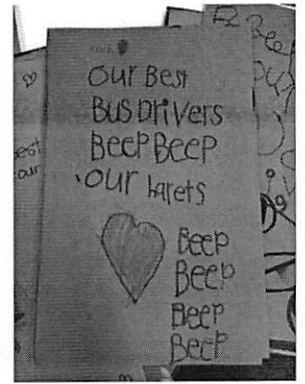 our Best
Bus Drivers
Beep Beep
our harets
Beep
Beep
Beep
Beep
est
our